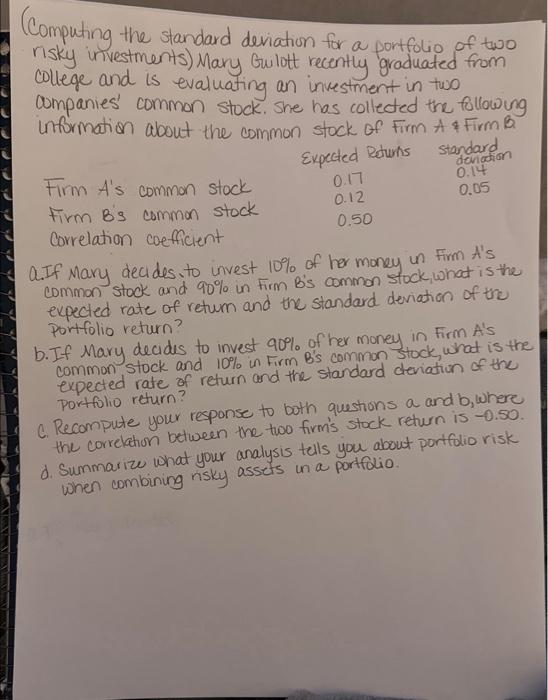 (Computing the standard deviation for a portfolio of two
risky investments) Mary Guilott recently graduated from
college and is evaluating an investment in two
companies' common stock. She has collected the following
information about the common stock of Firm A & Firm B
Expected Returns standard deviation
Firm A's common stock 0.17 0.14
Firm B's common stock 0.12 0.05
Correlation coefficient 0.50
a. If Mary decides to invest 10% of her money in Firm A's
common stock and 90% in Firm B's common stock, what is the
expected rate of return and the standard deviation of the
portfolio return?
b. If Mary decides to invest 90% of her money in Firm A's
common stock and 10% in Firm B's common stock, what is the
expected rate of return and the standard deviation of the
portfolio return?
c. Recompute your response to both questions a and b, where
the correlation between the two firm's stock return is -0.50.
d. Summarize what your analysis tells you about portfolio risk
when combining risky assets in a portfolio.